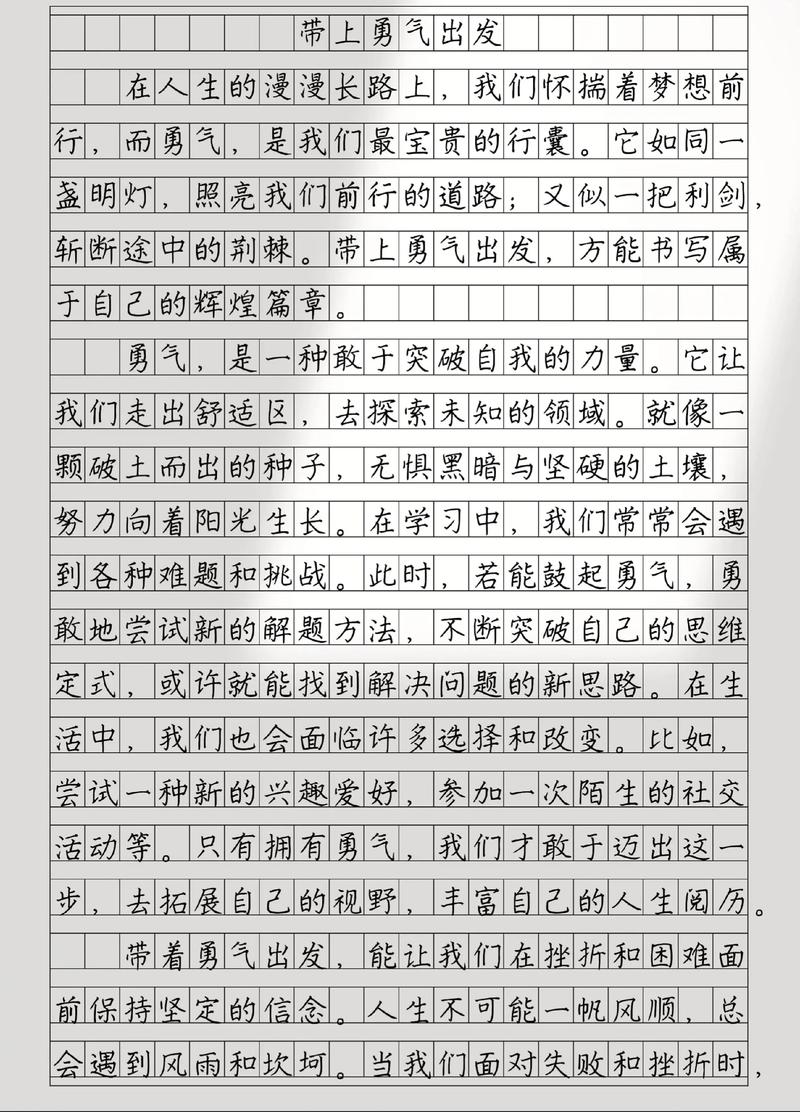 带上勇气出发
在人生的漫漫长路上，我们怀揣着梦想前
行，而勇气，是我们最宝贵的行囊。它如同一
盏明灯，照亮我们前行的道路；又似一把利剑，
斩断途中的荆棘。带上勇气出发，方能书写属
于自己的辉煌篇章。
勇气，是一种敢于突破自我的力量。它让
我们走出舒适区，去探索未知的领域。就像一
颗破土而出的种子，无惧黑暗与坚硬的土壤，
努力向着阳光生长。在学习中，我们常常会遇
到各种难题和挑战。此时，若能鼓起勇气，勇
敢地尝试新的解题方法，不断突破自己的思维
定式，或许就能找到解决问题的新思路。在生
活中，我们也会面临许多选择和改变。比如，
尝试一种新的兴趣爱好，参加一次陌生的社交
活动等。只有拥有勇气，我们才敢于迈出这一
步，去拓展自己的视野，丰富自己的人生阅历。
带着勇气出发，能让我们在挫折和困难面
前保持坚定的信念。人生不可能一帆风顺，总
会遇到风雨和坎坷。当我们面对失败和挫折时，